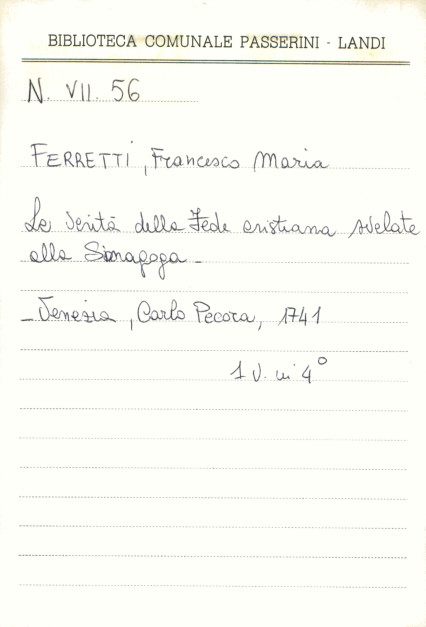 BIBLIOTECA COMUNALE PASSERINI - LANDI
N. VII. 56
FERRETTI, Francesco Maria
Le Verità della Fede cristiana svelate
alla Sinagoga -
- Venezia, Carlo Pecora, 1741
1 V. in 4°